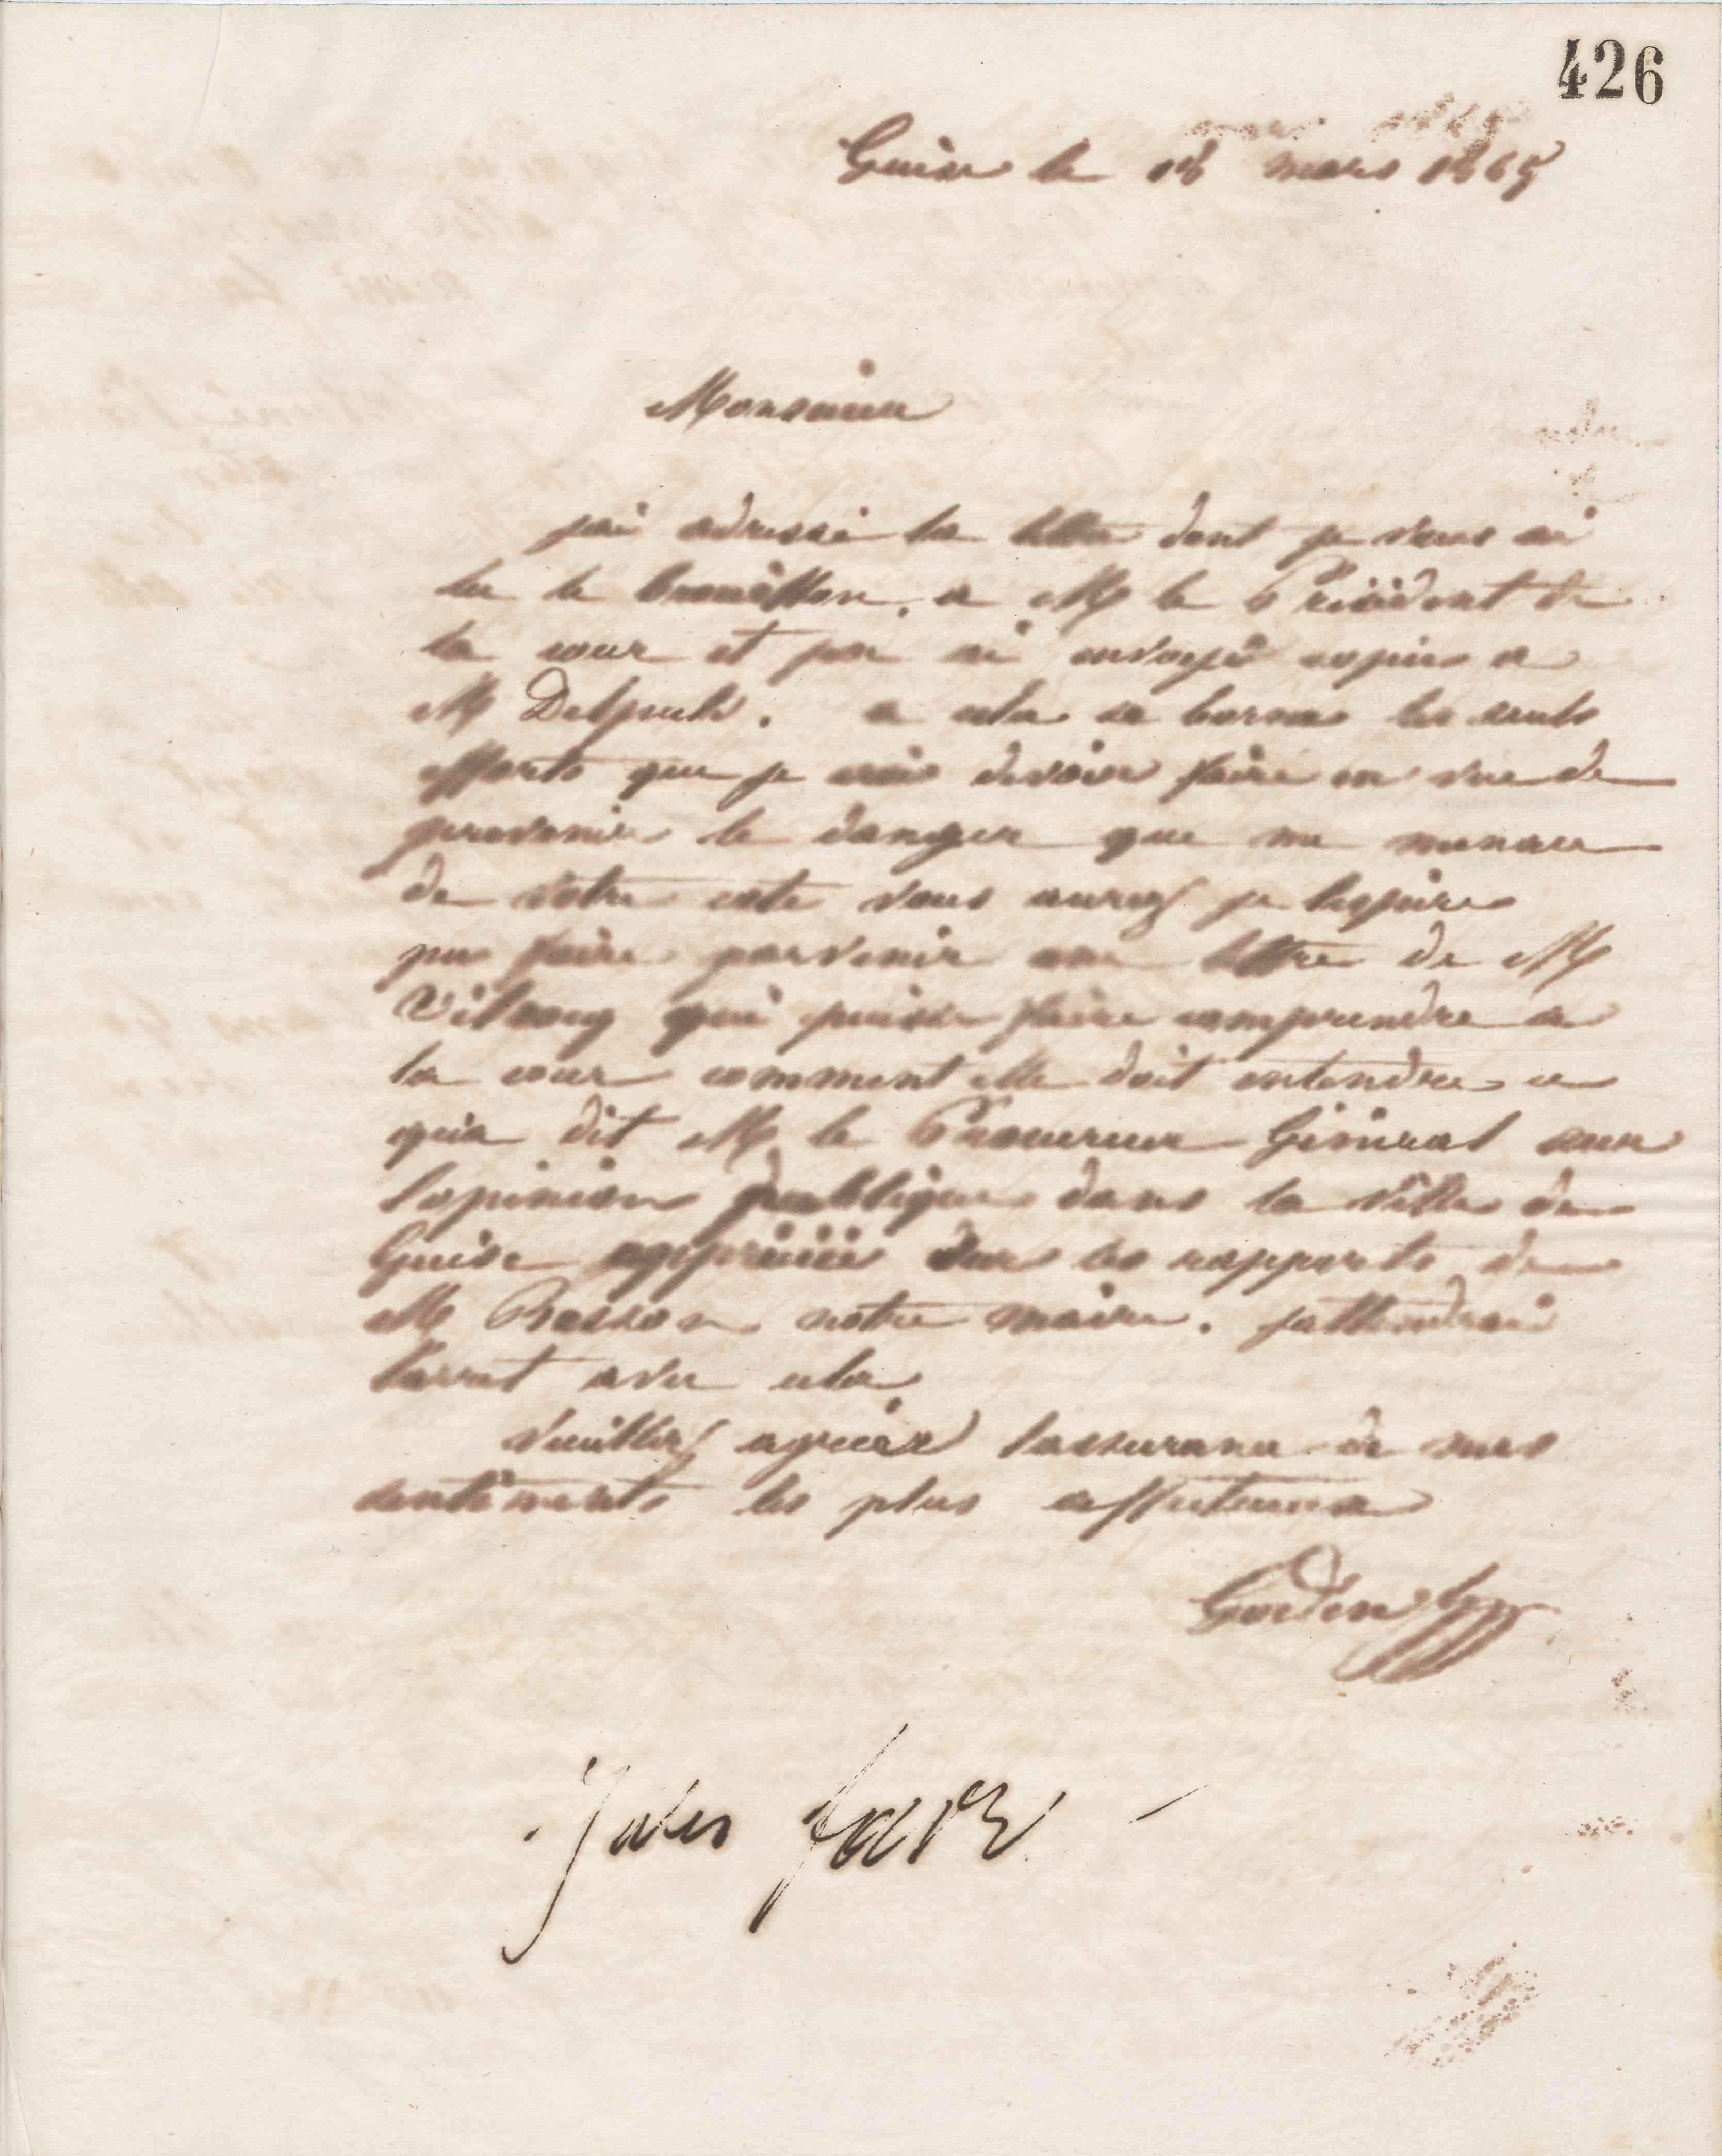 426
Guise le 18 mars 1865
Monsieur
jai adressé la lettre dont je vous ai
lu le brouillon, a M le Président de
la cour et jen ai envoyé copie a
M Delpech. a cela se borne les seuls
efforts que je crois devoir faire en vue de
prevenir le danger que me menace
de votre coté vous aurez je lespère
pu faire parvenir une lettre de M
qui puisse faire comprendre a
la cour comment elle doit entendre ce
qu'a dit M le Procureur Général sur
lopinion publique dans la ville de
Guise appréciée sur les rapports de
M Besson notre maire. jattendrai
larret avec cela
Veuillez agréer lassurance de mes
sentiments les plus affectueux
Godin
Jules favre